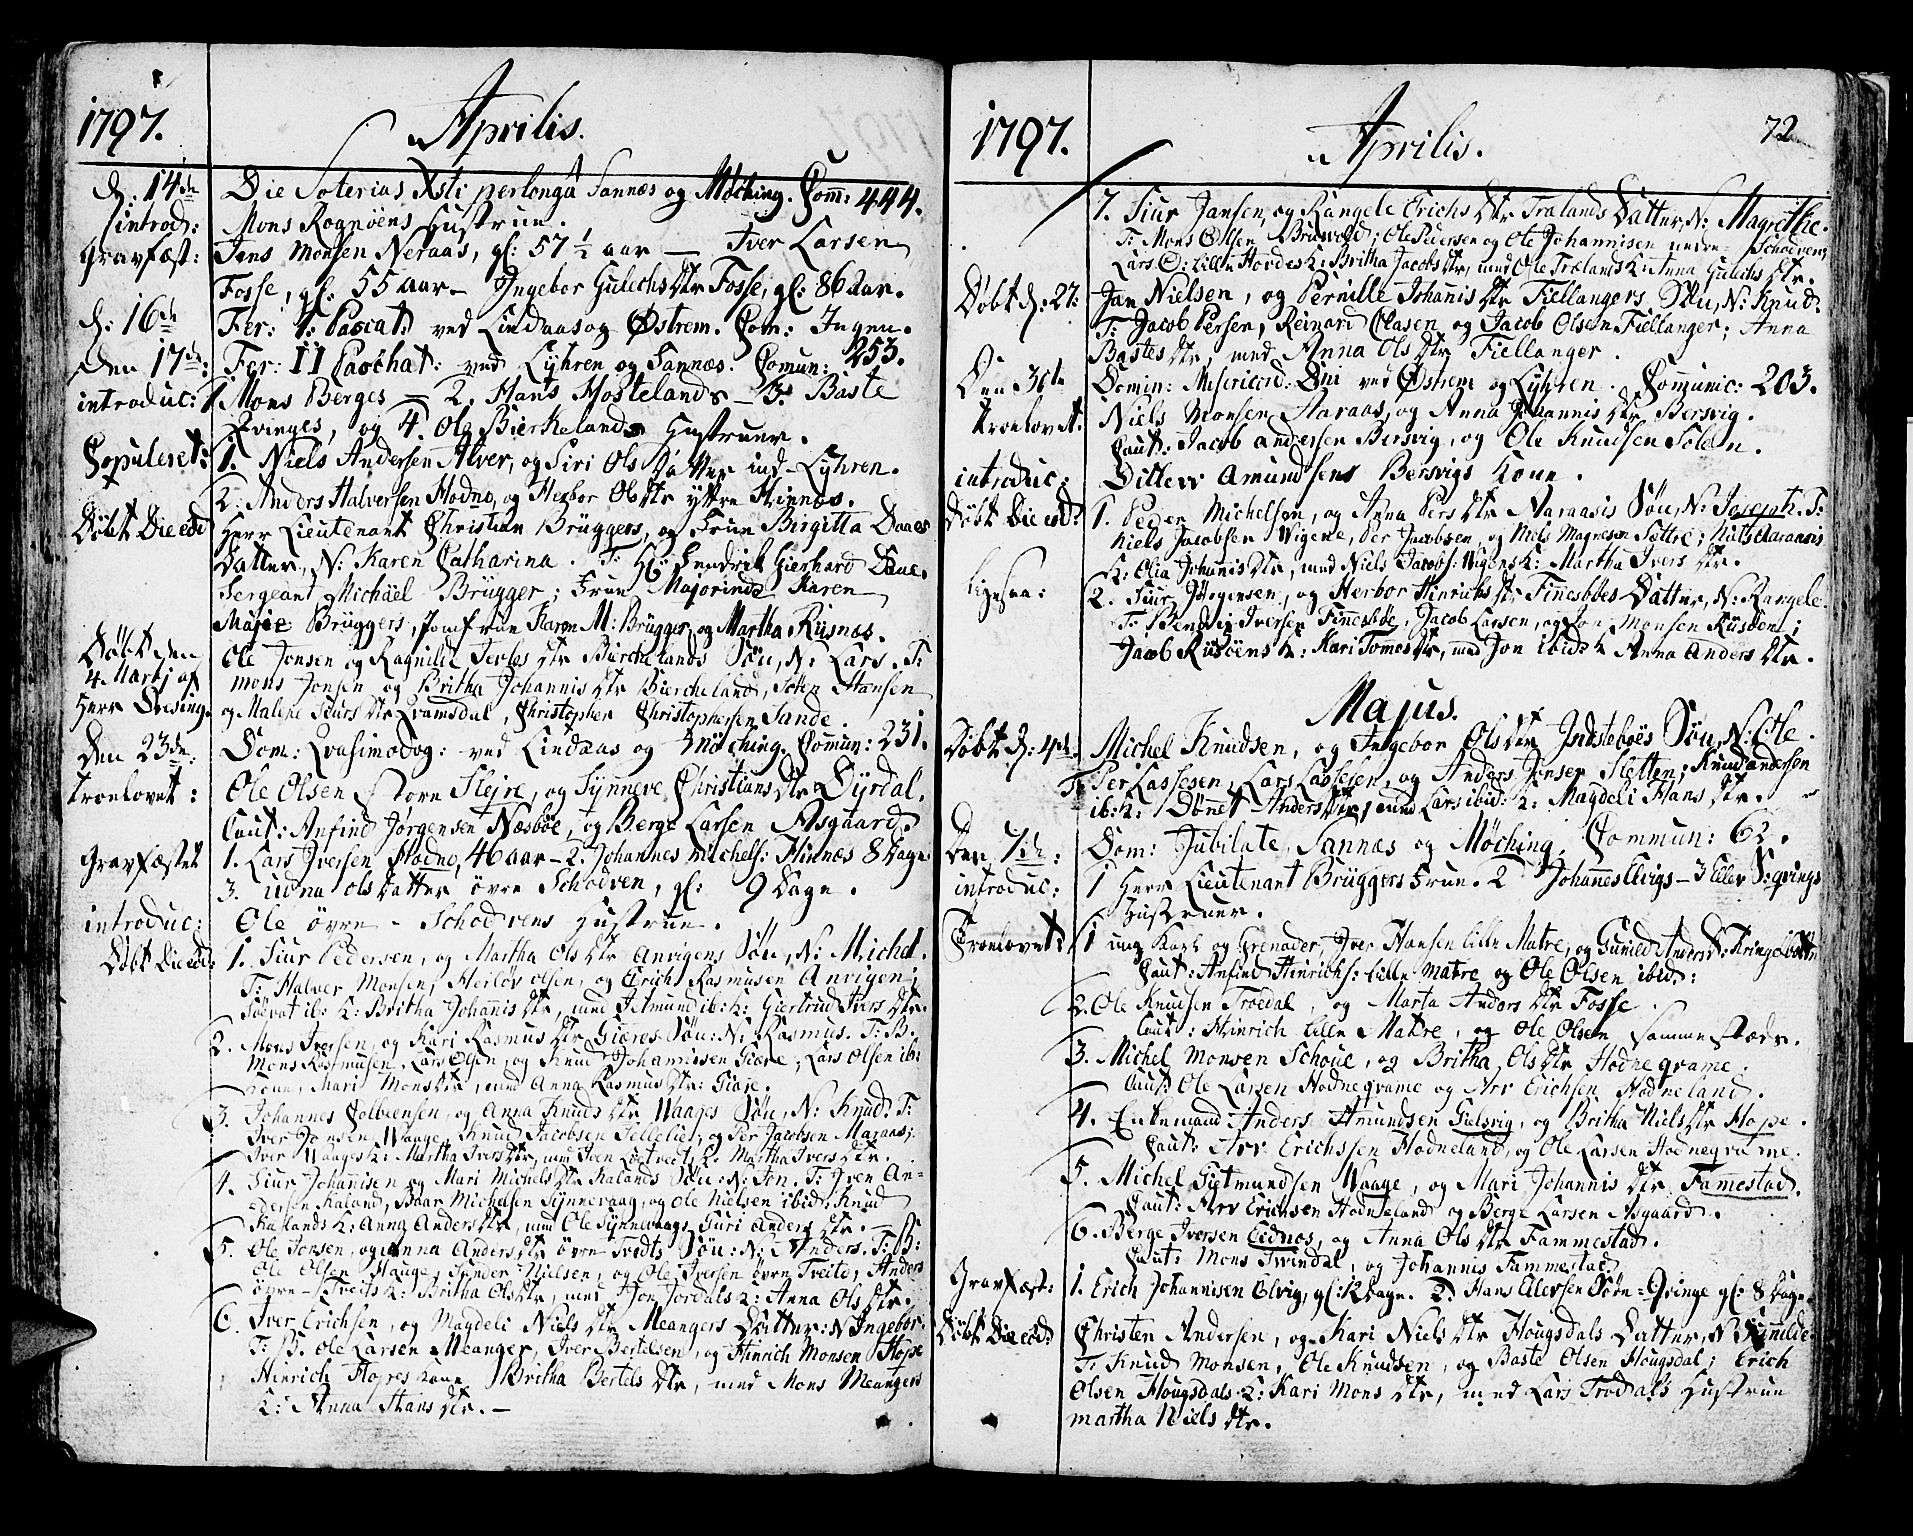 1797. Aprilis.
d: 14de Die Soterias Xsti perlonga Sannæs og Møching. Com: 444.
introd: Mons Rognøens Hustrue.
Gravfæst: Jens Monsen Neraas, gl: 57 1/2 aar — Iver Larsen
Fosse, gl: 55 aar — Ingebor Gulechs dtr Fosse, gl: 86 aar.
d: 16de Fer: I: Pascat: ved Lindaas og Østrem. Com: Ingen.
Den 17de: Fer: II Paschat: ved Lyhren og Sannæs. Comun: 253.
introduc: 1 Mons Berges — 2. Hans Hostelands — 3. Baste
Qvinges, og 4. Ole Bierkelands Hustruer.
Copuleret: 1. Niels Andersen Alver, og Siri Ols Datter ind - Lyhren.
2. Anders Halversen Hodno, og Herbor Ols dtr yttre Hinnæs.
Døbt Die eod Herr Lieutenant Christian Brüggers, og Frue Birgitta Daaes
Datter, N: Karen Catharina. T: Hr: Hendrik Gierhard Daae.
Sergeant Michäel Brügger; Frue Majorinde Karen
Majie Brüggers, Jomfrue Karen M: Brügger, og Martha Risnæs.
Døbt den Ole Jonsen og Ragnilde Ierlos dtr Bierchelands Søn, N: Lars. T:
4 Martj af Mons Jonsen og Britha Johannis dtr Biercheland, Søren Hansen
Herr Dresing. og Malene Siurs dtr Qvamsdal, Christopher Christophersen Sande.
Den 23de: Dom: Qvasimodog: ved Lindaas og Møching. Comun: 231.
Troelovet: Ole Olsen Store Slejre, og Synneve Christians dtr Dyrdal.
Caut: Anfind Jørgensen Næsbøe, og Berge Larsen Asgaard.
Gravfæstet 1. Lars Iversen Hodno, 46 aar — 2. Johannes Michels: Hinnæs 8 Dage
3. Udna Ols datter øvre Schodven, gl: 9 Dage.
introduc: Ole øvre - Schodvens Hustrue.
Døbt Die eod: 1. Siur Pedersen, og Martha Ols dtr Anvigens Søn, N: Michel.
T: Halver Monsen, Herlöv Olsen, og Erich Rasmusen Anvigen;
Siövat ib: K: Britha Johannis dtr, med Jetmund ib: K: Giertrud Ivers dtr.
2. Mons Iversen, og Kari Rasmus dtr Giæres Søn: N: Rasmus. T: B.
Mons Rasmusen, Lars Olsen, og Knud Johannisen Giære; Lars Olsen ib:
kone, Mari Mons dtr, med Anna Rasmus dtr: Giære.
3. Johannes Colbeensen, og Anna Knuds dtr Waages Søn, N: Knud. T:
Iver Jonsen Waage, Knud Jacobsen Sellelie, og Per Jacobsen Marans;
Iver Waages K: Martha Ivers dtr, med Iven Listvedts K: Martha Ivers dtr.
4. Siur Johannisen og Mari Michels dtr Kalands Søn: N: Jon. T: Iven An-
dersen Kaland, Baar Michelsen Synnevaag, og Ole Nielsen ibid: Knud
Kalands K: Anna Anders dtr, med Ole Synnevaags Guri Anders dtr. —
5. Ole Jonsen, og Anna Anders dtr øvre Tvedts Søn: N: Anders. T: B:
Ole Olsen Hauge, Sunder Nielsen, og Ole Iversen øvre Tveite; Anders
øvre - Tveits K: Britha Ols dtr, med Jon Jordals K: Anna Ols dtr.
6. Iver Erichsen, og Magdeli Niels dtr Meangers Datter: N Ingebor.
T: B. Ole Larsen Meanger, Iver Bertelsen, og Hinrich Monsen Hope
Hinrich Hopes Kone Britha Bertels dtr, med Mons Meangers
K: Anna Hans dtr. —
1797. Aprilis. 72
7. Siur Jansen, og Rangele Erichs dtr Trælands Datter, N: Magrethe.
T: Mons Olsen Bruvold; Ole Pedersen og Ole Johannisen nedre Schodven;
Lars O: Lille Hordes K: Britha Jacobs dtr, med Ole Trælands K: Anna Gulichs dtr.
Døbt d: 27: Jan Nielsen, og Pernille Johannis dtr Fiellangers Søn, N: Knud.
T: Jacob Persen, Reinard Olasen og Jacob Olsen Fiellanger; Anna
Bastes dtr, med Anna Ols dtr Fiellanger.
Den 30te Domin: Misericord: Dni ved Østrem og Lyhren. Comunic: 203.
troelovet: Niels Monsen Aaraas, og Anna Johannis dtr Bersvig.
Caut: Jacob Andersen Bersvig, og Ole Knudsen Solem.
introduc: Ditlevv Amundsens Bersvigs Kone.
Døbt Die eod: 1. Peder Michelsen, og Anna Pers dtr Aaraasis Søn, N: Joseph. T:
Niels Jacobsen Wigene, Per Jacobsen, og Niels Magnesen Sættre; Niels Aaraasis
K: Olia Johannis dtr, med Niels Jacobs: Wigens K: Martha Ivers dtr.
ligesaa: 2. Siur Jørgensen, og Herbor Hinrichs dtr Finnesbøes Datter, N: Rangele.
T: Bendix Iversen Finnesbøe, Jacob Larsen, og Jon Monsen Risøen;
Jacob Risöens K: Kari Tomes dtr, med Jon ibid: K Anna Anders dtr.
Majus.
Døbt d: 4de. Michel Knudsen, og Ingebor Ols dtr Indstebøes Søn, N: Ole.
T: Per Lassesen, Lars Lassesen, og Anders Jensen Sletten; Knud Andersen
ib: K: Dønnet Anders dtr, med Lars ibid: K: Magdeli Hans dtr.
Den 7de: Dom: Jubilate, Sannæs og Møching; Commun: 62.
introduc: 1 Herr Lieutenant Brüggers Frue. 2 Johannes Elvigs — 3 Eilev S: qvings
Hustruer.
Troelovet: 1 ung Karl og Grenader, Iver Hansen lille Matre, og Gunild Anders dt: Kringelbotten
Caut: Anfind Hinrichs: lille Matre og Ole Olsen ibid:
2. Ole Knudsen Trædal, og Marta Anders dtr Fosse.
Caut: Hinrich Lille Matre, og Ole Olsen sammestæds.
3. Michel Monsen Schoue, og Britha Ols dtr Hodneqvame.
Caut: Ole Larsen Hodneqvame og Arv Erichsen Hodneland.
4. Enkemand Anders Amundsen Gielsvig, og Britha Niels dtr Hope.
Caut: Arv Erichssen Hodneland, og Ole Larsen Hodneqvame.
5. Michel Gietmundsen Waage, og Mari Johannis dtr Famestad.
Caut: Arv Erichsen Hodneland og Berge Larsen Asgaard.
6. Berge Iversen Eidnes, og Anna Ols dtr Fammestad.
Caut: Mons Tvindal, og Johannis Fammestad.
Gravfæst: 1. Erich Johannisen Elvig, gl: 12 Dage. 2. Hans Eilevsen Søre - Qvinge gl: 8 Dage.
Døbt Die eod: Christen Andersen, og Kari Niels dtr Hougsdals Datter, N: Gunnilde
T: Knud Monsen, Ole Knudsen, og Baste Olsen Hougsdal; Erich
Olsen Hougsdals K: Kari Mons dtr, med Lars Trodals Hustrue
Martha Niels dtr.